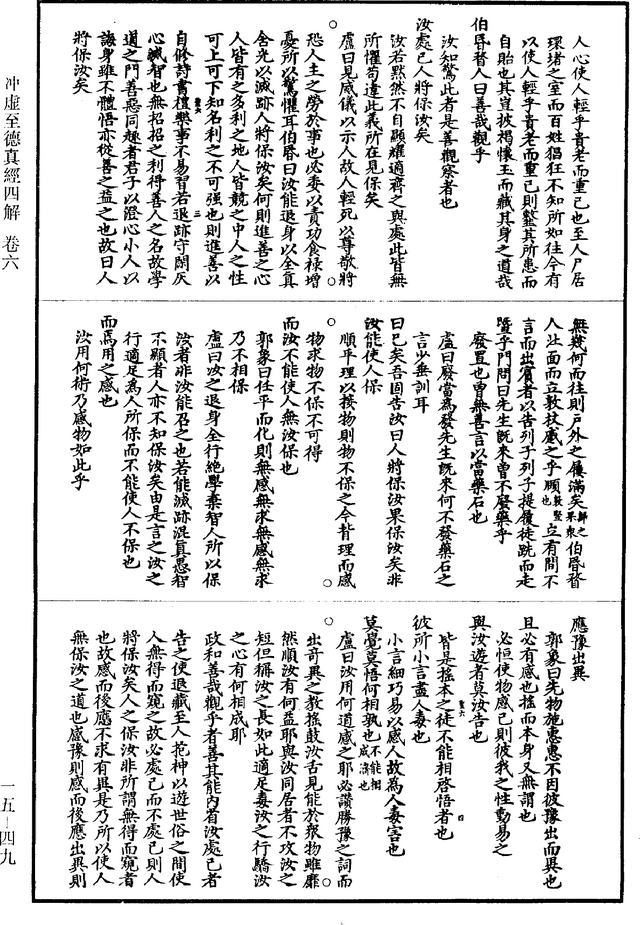 冲虛至德真經四解 卷六
人心使人輕乎貴老而重己也至人尸居
環堵之室而百姓猖狂不知所如往今有
以使人輕乎貴老而重己則䪠其所患而
自貽也其豈披褐懷玉而藏其身之道哉
伯昏瞀人曰善哉觀乎
汝知驚此者是善觀察者也
汝處已人將保汝矣
汝若默然不自顯燿適齊之與處此皆無
所懼苟違此義所在見保矣
○盧曰見威儀以示人故人輕死以尊敬將
恐人主之勞於事也必委以責功食祿增
憂所以驚懼耳伯昏曰汝能退身以全真
含光以滅跡人將保汝矣何則進善之心
人皆有之多利之地人皆競之中人之性
可上可下知名利之不可強也則進善以
自修詩書禮樂事不易習若退跡守閑灰
心滅智也無招招之利得善人之名故學
道之門善惡同趣者君子以澄心小人以
誨身雖不體悟亦從善之益之也故曰人
將保汝矣
無幾何而往則戶外之屨滿矣歸之果衆伯昏瞀
人北面而立敦杖蹙之乎頤敦豎也立有間不
言而出賓者以告列子列子提履徒跣而走
暨乎門問曰先生既來曾不廢藥乎
廢置也曾無善言以當藥石也
盧曰廢當為發先生既來何不發藥石之
言少垂訓耳
曰已矣吾固告汝曰人將保汝果保汝矣非
汝能使人保
○順乎理以接物則物不保之今背理而感
物求物不保不可得
而汝不能使人無汝保也
郭象曰任平而化則無感無求無感無求
乃不相保
盧曰汝之退身全行絕學棄智人所以保
汝者非汝能召之也若能滅跡混真愚智
不顯者人亦不知保汝矣由是言之汝之
行適足為人所保而不能使人不保也
而焉用之感也
汝用何術乃感物如此乎
應豫出異
郭象曰先物施惠惠不因彼豫出而異也
且必有感也搖而本身又無謂也
必恒使物感己則彼我之性動易之
與汝遊者莫汝告也
皆是搖本之徒不能相啓悟者也
彼所小言盡人毒也
小言細巧易以感人故為人毒害也
莫覺莫悟何相孰也不能相成濟也
○盧曰汝用何道感之耶必讚勝豫之詞而
出奇異之教搖鼓汝舌見能於衆物雖靡
然順汝有何益耶與汝同居者不攻汝之
短但稱汝之長如此適足毒汝之行驕汝
之心有何相成耶
政和善哉觀乎者善其能內省汝處己者
告之使退藏至人菴神以遊世俗之間使
人無得而窺之故必處己而不處己則人
將保汝矣人之保汝非所謂無得而窺者
也故感而後應不求有異是乃所以使人
無保汝之道也感豫則感而後應出異則
一五—四九